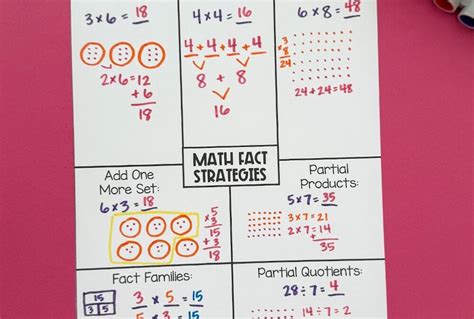 3×6=18
2×6=12
+6
18
4×4=16
4+4+4+4
8 + 8
16
6×8=48
3
×8
24
24+24=48
MATH FACT
STRATEGIES
Add One
More Set:
6×3=18
×5
3
15
+3
18
Partial
Products:
5×7=35
3×7=21
2×7=14
+
35
Fact Families:
15
3 5
3 × 5 = 15
5 × 3 = 15
Partial Quotients:
28÷7=4
14÷7=2